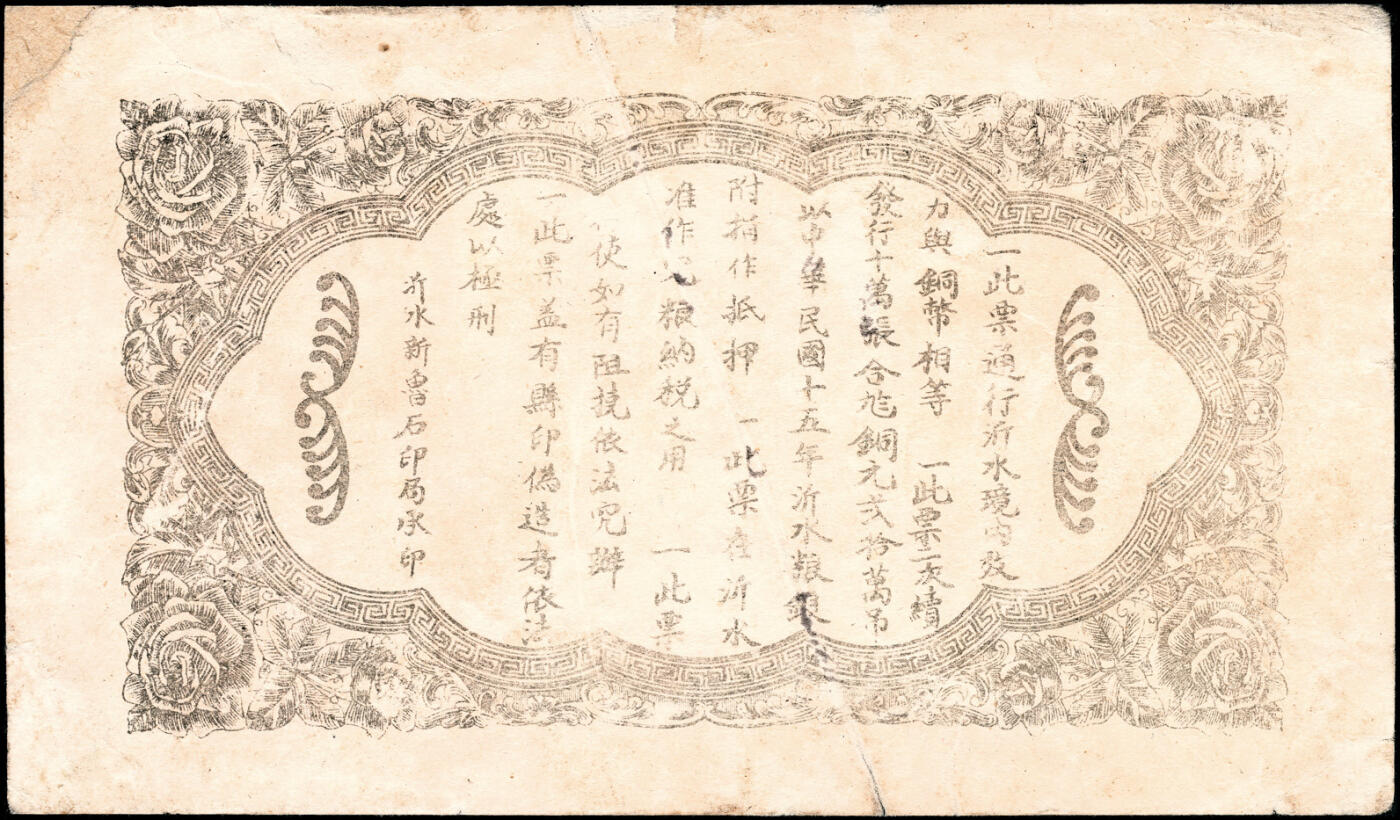 一此票通行沂水境內效
力與銅幣相等　一此票二次續
發行十萬張合㡳銅元弍拾萬吊
以中華民國十五年沂水糧銀
附捐作抵押　一此票在沂水
准作完粮納税之用　一此票
使如有阻撓依法究辦
一此票盖有縣印偽造者依法
處以極刑
沂水新魯石印局承印